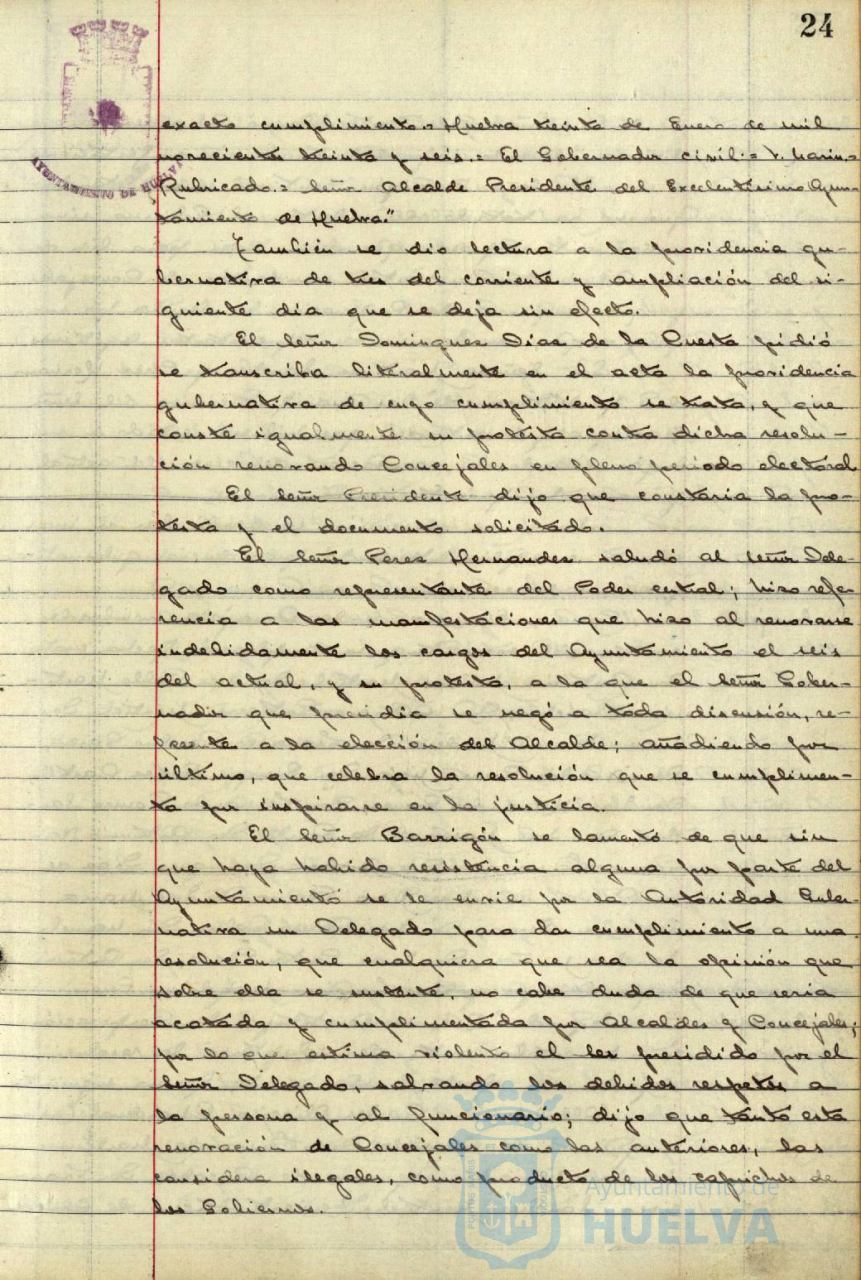 24
AYUNTAMIENTO DE HUELVA
exacto cumplimiento.= Huelva treinta de Enero de mil
novecientos treinta y seis.= El Gobernador civil.= V. Marin.=
Rubricado.= Señor Alcalde Presidente del Excelentísimo Ayun-
tamiento de Huelva."
También se dio lectura a la providencia gu-
bernativa de tres del corriente y ampliación del si-
guiente dia que se deja sin efecto.
El Señor Dominguez Diaz de la Cuesta pidió
se transcriba literalmente en el acta la providencia
gubernativa de cuyo cumplimiento se trata, y que
conste igualmente su protesta contra dicha resolu-
ción renovando Concejales en pleno periodo electoral
El Señor Presidente dijo que constaria la pro-
testa y el documento solicitado.
El Señor Perez Hernandez saludó al Señor Dele-
gado como representante del Poder entral; hizo refe-
rencia a las manifestaciones que hizo al renovarse
indebidamente los cargos del Ayuntamiento el seis
del actual, y su protesta, a la que el Señor Gober-
nador que presidia se negó a toda discusión, re-
ferente a la elección del Alcalde; añadiendo por
último, que celebra la resolución que se cumplimen-
ta por inspirarse en la justicia.
El Señor Barrigón se lamentó de que sin
que haya habido resistencia alguna por parte del
Ayuntamiento se le envie por la Autoridad Guber-
nativa un Delegado para dar cumplimiento a una
resolución, que cualquiera que sea la opinión que
sobre ella se sustente, no cabe duda de que seria
acatada y cumplimentada por Alcaldes y Concejales;
por lo que estima violento el ser presidido por el
Señor Delegado, salvando los debidos respetos a
la persona y al funcionario; dijo que tanto esta
renovación de Concejales como las anteriores, las
considera ilegales, como producto de los caprichos de
los Gobiernos.
Ayuntamiento de
HUELVA